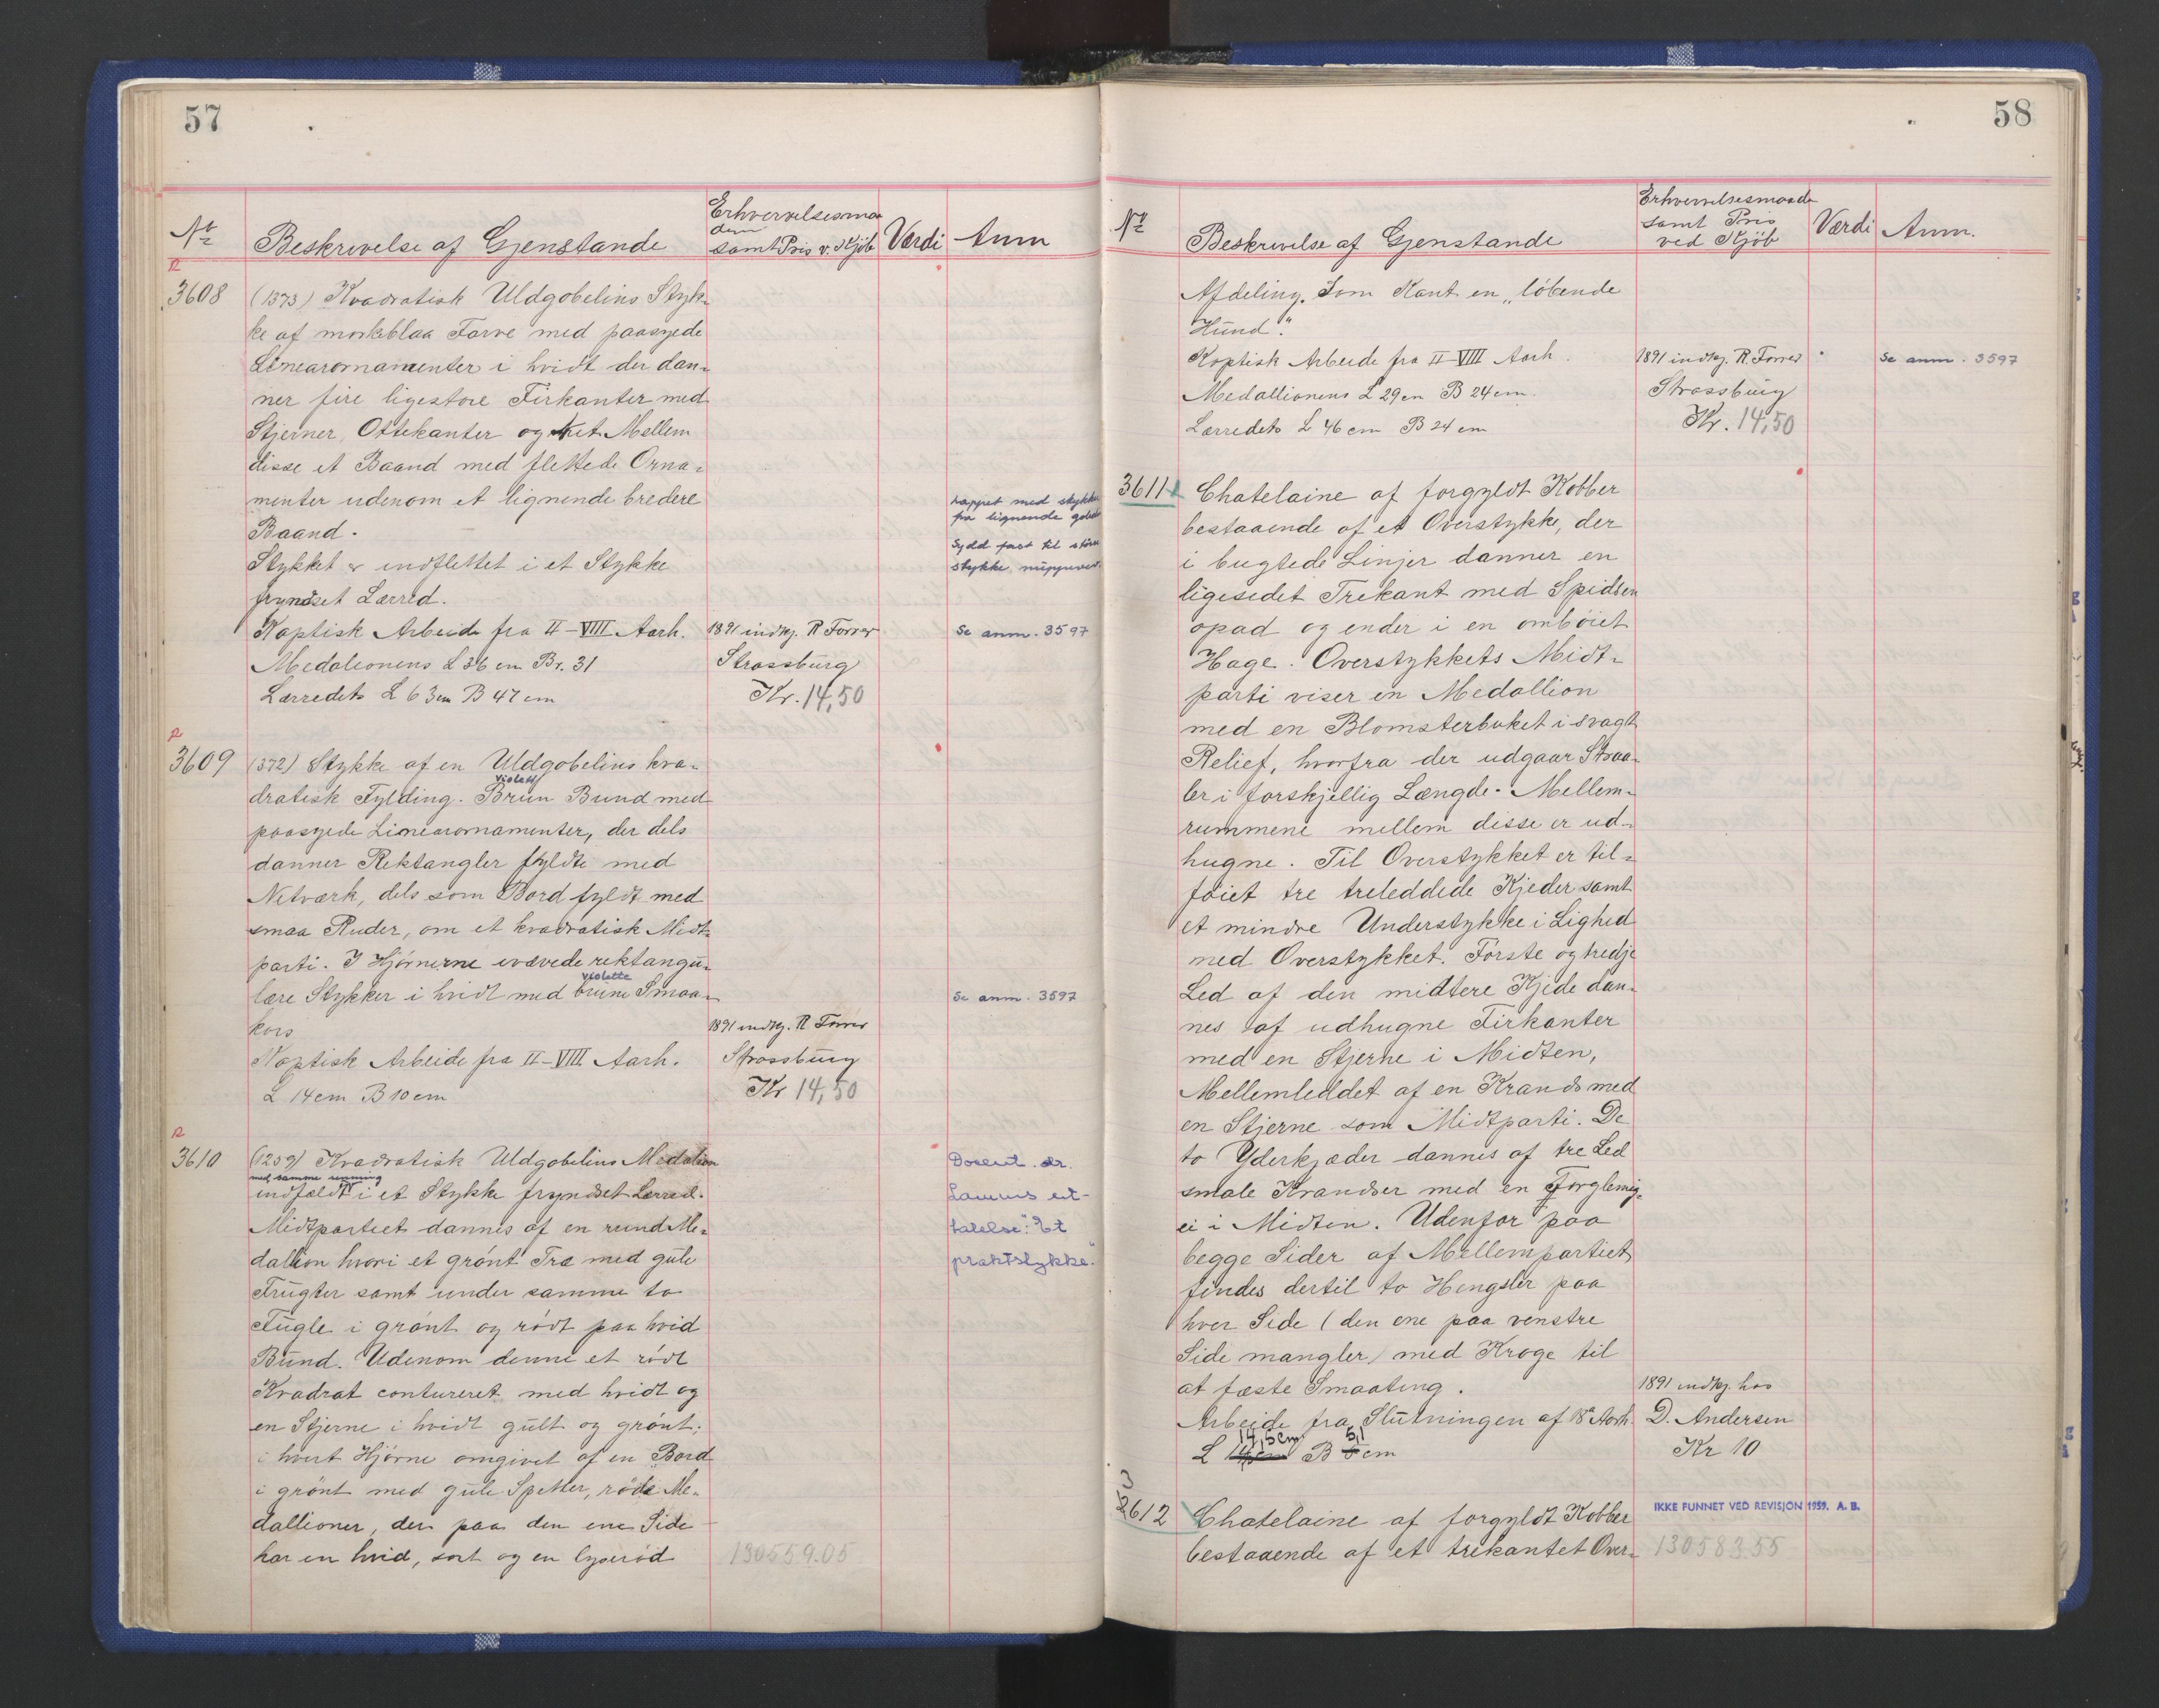 57
Nr
Beskrivelse af Gjenstande
Erhvervelsesmaa
den
samt Pris v. Kjøb
Værdi
Anm
R
3608
(1373) Kvadratisk Uldgobelins Styk-
ke af mørkeblaa Farve med paasyede
Linearornamenter i hvidt der dan-
ner fire ligestore Firkanter med
Stjerner, Ottekanter og Mellem
disse et Baand med flettede Orna-
menter udenom et lignende bredere
Baand.
lappet med stykke
fra lignende
Sydd fast til større
stykke
Stykket er indflettet i et Stykke
fryndset Lærred.
Koptisk Arbeide fra II-VIII Aarh.
1891 indkj. R Forrer
Se anm. 3597
Medalionens L 36 cm Br. 31
Strassburg
Lærredets L 63 cm B 47 cm
Kr. 14,50
R
3609
(372) Stykke af en Uldgobelins kva-
violett
dratisk Fylding. Brun Bund med
paasyede Linearornamenter, der dels
danner Rektangler fyldte med
Netværk, dels som Bord fyldt med
smaa Ruder, om et kvadratisk Midt-
parti. I Hjørnerne ivævede rektangu-
violette
lære Stykker i hvidt med brune Smaa-
Se anm. 3597
kors
1891 indkj. R Forrer
Koptisk Arbeide fra II-VIII Aarh.
Strassburg
L 14 cm B 10 cm
Kr 14,50
R
3610
(1259) Kvadratisk Uldgobelins Medalion
med samme renning
indfældt i et Stykke fryndset Lærred.
Midtpartiet dannes af en rund Me-
dallion hvori et grønt Træ med gule
Frugter samt under samme to
Fugle i grønt og rødt paa hvid
Bund. Udenom denne et rødt
Kvadrat contureret med hvidt og
en Stjerne i hvidt gult og grønt;
i hvert Hjørne omgivet af en Bord
i grønt med gule Spetter, røde Me-
dallioner, der paa den ene Side
har en hvid, sort og en lyserød
Docent dr.
Lamms ut-
talelse: "Et
praktstykke."
130559.05
58
Nr
Beskrivelse af Gjenstande
Erhvervelsesmaade
samt Pris
ved Kjøb
Værdi
Anm.
Afdeling. Som Kant en "løbende
Hund".
Koptisk Arbeide fra II-VIII Aarh.
1891 indkj. R. Forrer
Se anm. 3597
Medallionens L 29 cm B 24 cm.
Strassburg
Lærredets L 46 cm B 24 cm
Kr. 14,50
3611
Chatelaine af forgyldt Kobber
bestaaende af et Overstykke, der
i bugtede Linjer danner en
ligesidet Trekant med Spidsen
opad og ender i en ombøiet
Hage. Overstykkets Midt-
parti viser en Medallion
med en Blomsterbuket i svagt
Relief, hvorfra der udgaar Straa-
ler i forskjellig Længde. Mellem-
rummene mellem disse er ud-
hugne. Til Overstykket er til-
føiet tre treleddede Kjeder samt
et mindre Understykke i Lighed
med Overstykket. Første og tredje
Led af den midtere Kjede dan-
nes af udhugne Firkanter
med en Stjerne i Midten,
Mellemleddet af en Krands med
en Stjerne som Midtparti. De
to Yderkjæder dannes af tre Led
smale Krandser med en Forglemig-
ei i Midten. Udenfor paa
begge Sider af Mellempartiet
findes dertil to Hengsler paa
hver Side (den ene paa venstre
Side mangler) med Kroge til
at fæste Smaating.
1891 indkj. hos
Arbeide fra Slutningen af 18de Aarh.
D. Andersen
14,5 cm 5,1
L B cm
Kr 10
3
2612
Chatelaine af forgyldt Kobber
IKKE FUNNET VED REVISJON 1959. A. B.
bestaaende af et trekantet Over-
130583.55